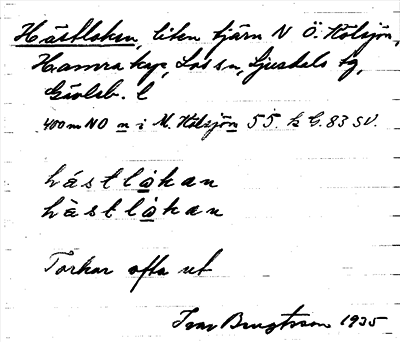 Hästloken, liten tjärn N Ö. Hölsjön,
Hamra kap, Los sn, Ljusdals tg,
Gävleb. l
400 m NO n i M. Hölsjön 55. k G. 83 SV.
hástlo̲kan
hàstlo̲kan
Torkar ofta ut
Ivar Bengtsson 1935